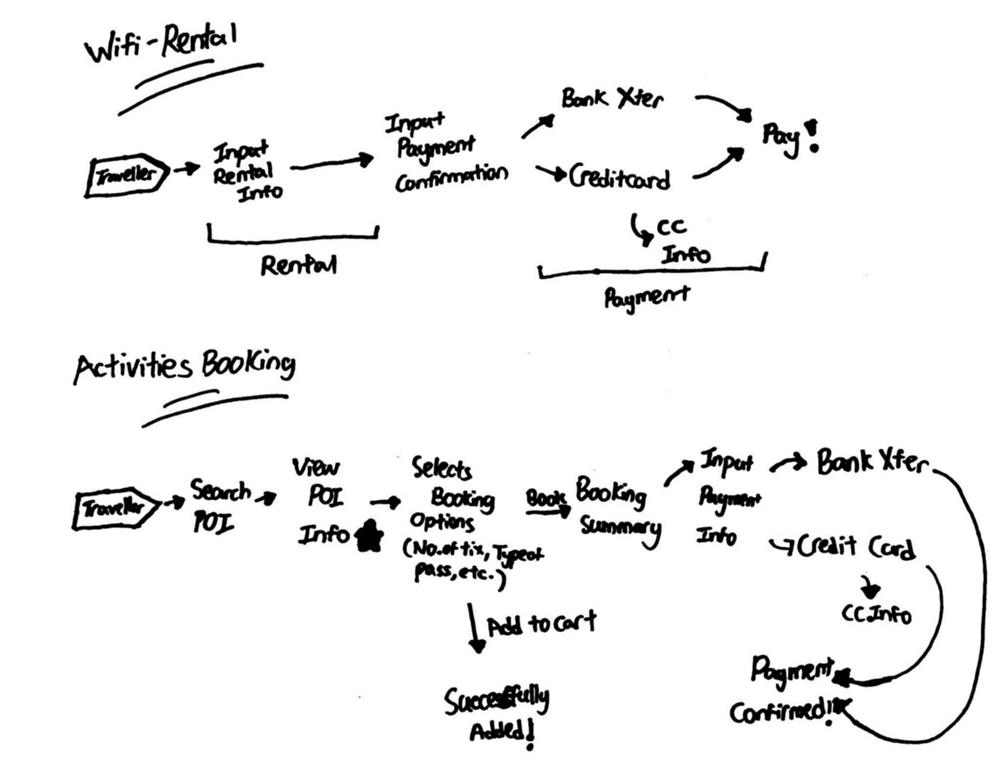 Wifi-Rental
Traveller
Input
Rental
Info
Rental
Input
Payment
Confirmation
Bank Xter
Creditcard
CC
Info
Payment
Pay!
Activities Booking
Traveller
Search
POI
View
POI
Info
Selects
Booking
Options
(No. of tix, Type of
pass, etc.)
Add to cart
Successfully
Added!
Book
Booking
Summary
Input
Payment
Info
Bank Xfer
Credit Card
CC.Info
Payment
Confirmed!